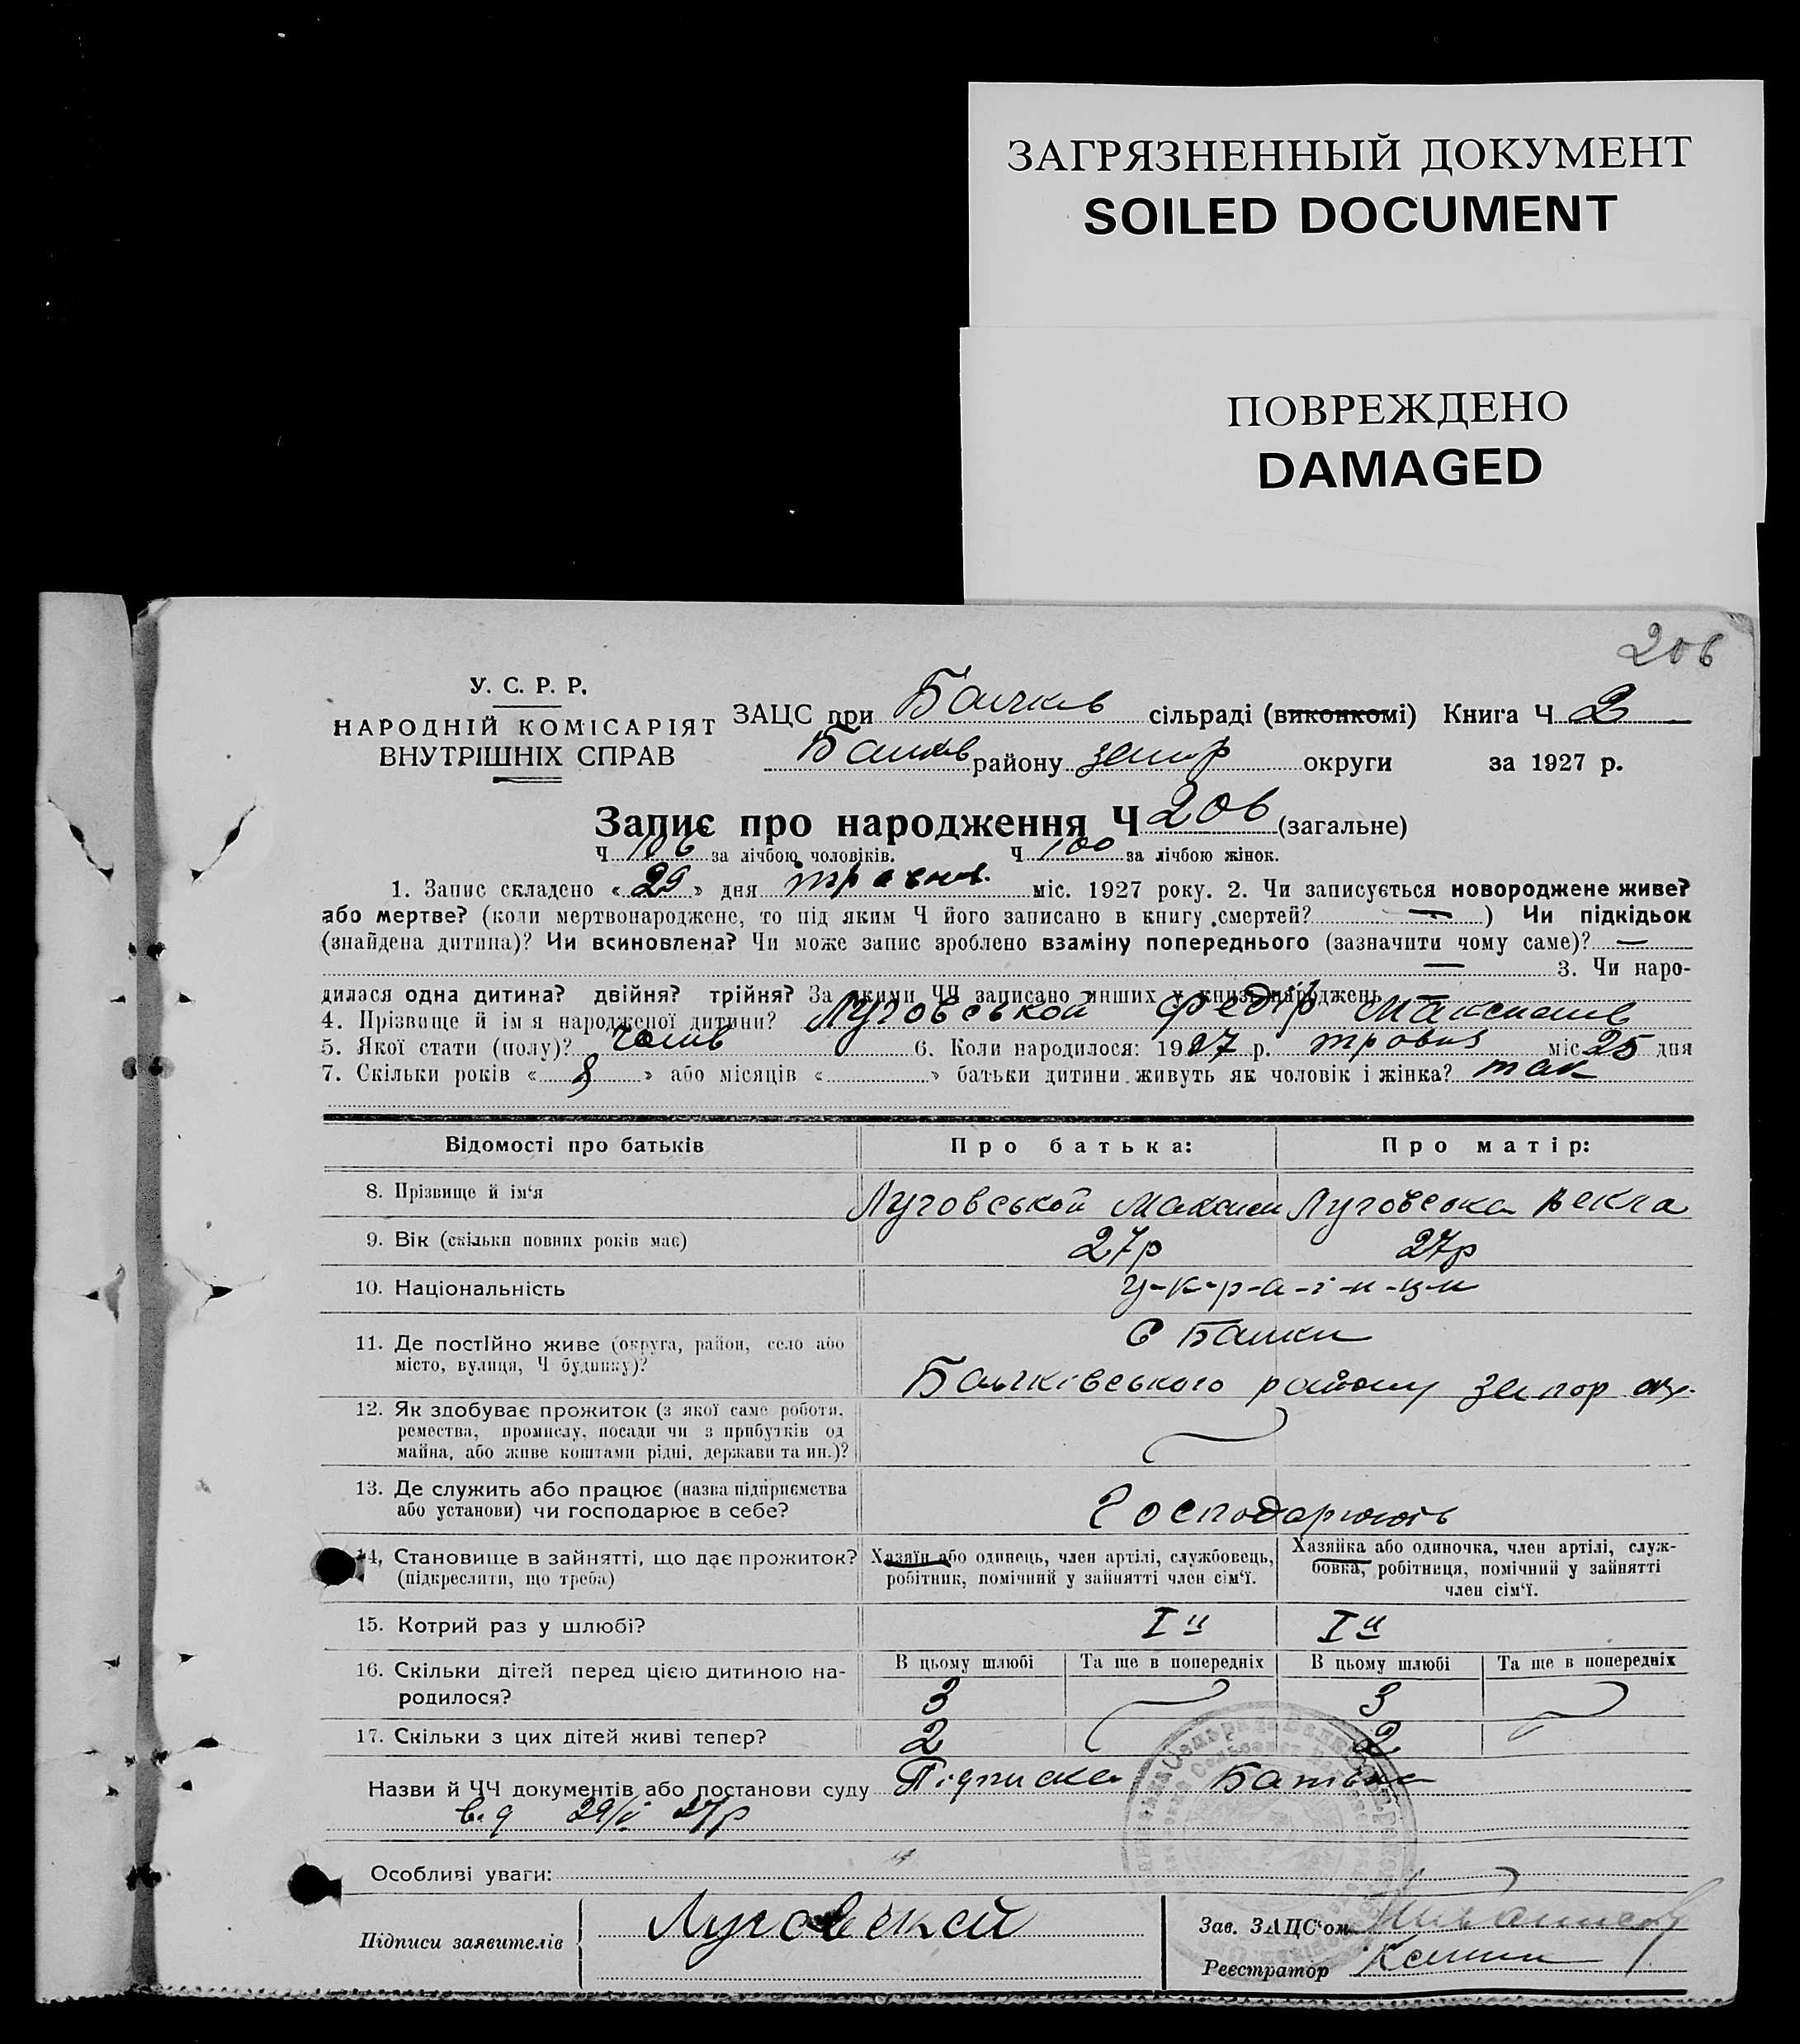 ЗАГРЯЗНЕННЫЙ ДОКУМЕНТ
SOILED DOCUMENT
ПОВРЕЖДЕНО
DAMAGED
206
У. С. Р. Р.
НАРОДНІЙ КОМІСАРІЯТ
ВНУТРІШНІХ СПРАВ
ЗАЦС при Балчків сільраді (виконкомі) Книга Ч 2
району запор округи за 1927 р.
Запис про народження Ч 206 (загальне)
Ч 106 за лічбою чоловіків. Ч 100 за лічбою жінок.
1. Запис складено « 29 » дня травня міс. 1927 року. 2. Чи записується новороджене живе?
або мертве? (коли мертвонароджене, то під яким Ч його записано в книгу смертей? — ) Чи підкідьок
(знайдена дитина)? Чи всиновлена? Чи може запис зроблено взаміну попереднього (зазначити чому саме)? —
— 3. Чи наро-
дилася одна дитина? двійня? трійня? За якими ЧЧ записано инших у книзі народжень
4. Прізвище й ім'я народженої дитини? Луговськой Федір Максимів
5. Якої стати (полу)? Чолів 6. Коли народилося: 1927 р. травня міс 25 дня
7. Скільки років « 8 » або місяців « » батьки дитини живуть як чоловік і жінка? так
Відомості про батьків Про батька: Про матір:
8. Прізвище й ім'я Луговськой Максим Луговська Векла
9. Вік (скільки повних років має) 27р 27р
10. Національність у-к-р-а-ї-н-ци
11. Де постійно живе (округа, район, село або С Балки
місто, вулиця, Ч будинку)? Балчківського району запор ок.
12. Як здобуває прожиток (з якої саме роботи,
ремества, промислу, посади чи з прибутків од
майна, або живе коштами рідні, держави та ин.)?
13. Де служить або працює (назва підприємства
або установи) чи господарює в себе? Господарюють
14. Становище в зайнятті, що дає прожиток? Хазяїн або одинець, член артілі, службовець, Хазяйка або одиночка, член артілі, служ-
(підкреслити, що треба) робітник, помічний у зайнятті член сім'ї. бовка, робітниця, помічний у зайнятті
член сім'ї.
15. Котрий раз у шлюбі? І й І й
16. Скільки дітей перед цією дитиною на- В цьому шлюбі Та ще в попередніх В цьому шлюбі Та ще в попередніх
родилося? 3 3
17. Скільки з цих дітей живі тепер? 2 2
Назви й ЧЧ документів або постанови суду Підписка Батька
від 29/V 27р
Особливі уваги:
Підписи заявителів Луговской Зав. ЗАЦС'ом
Реєстратор